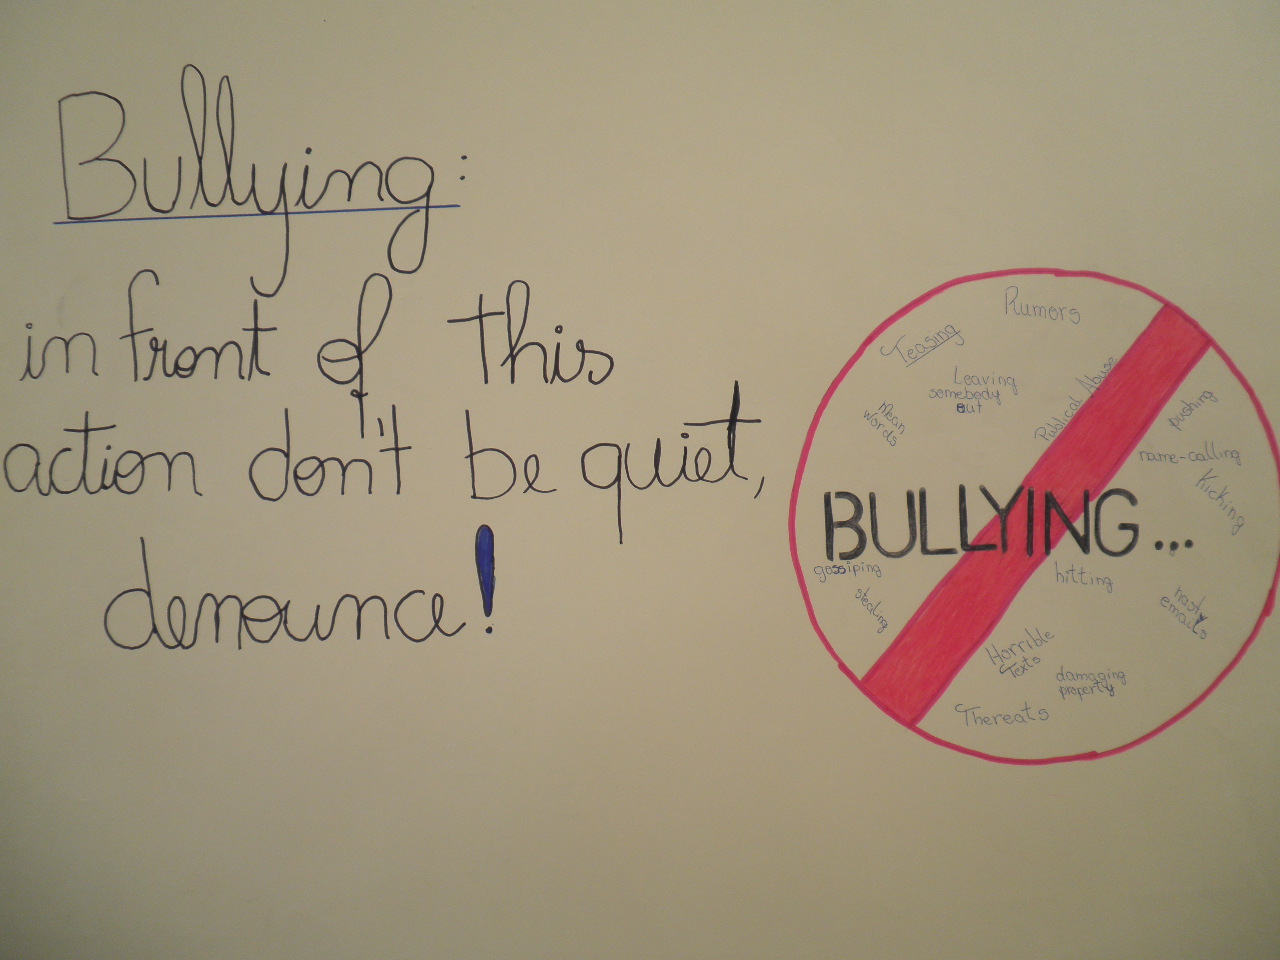 Bullying:
in front of this
action don't be quiet,
denounce!
Rumors
Teasing
Leaving
somebody
out
Mean
words
Publical Abuse
pushing
name-calling
Kicking
BULLYING...
gossiping
stealing
hitting
nasty
emails
Horrible
Texts
damaging
property
Thereats